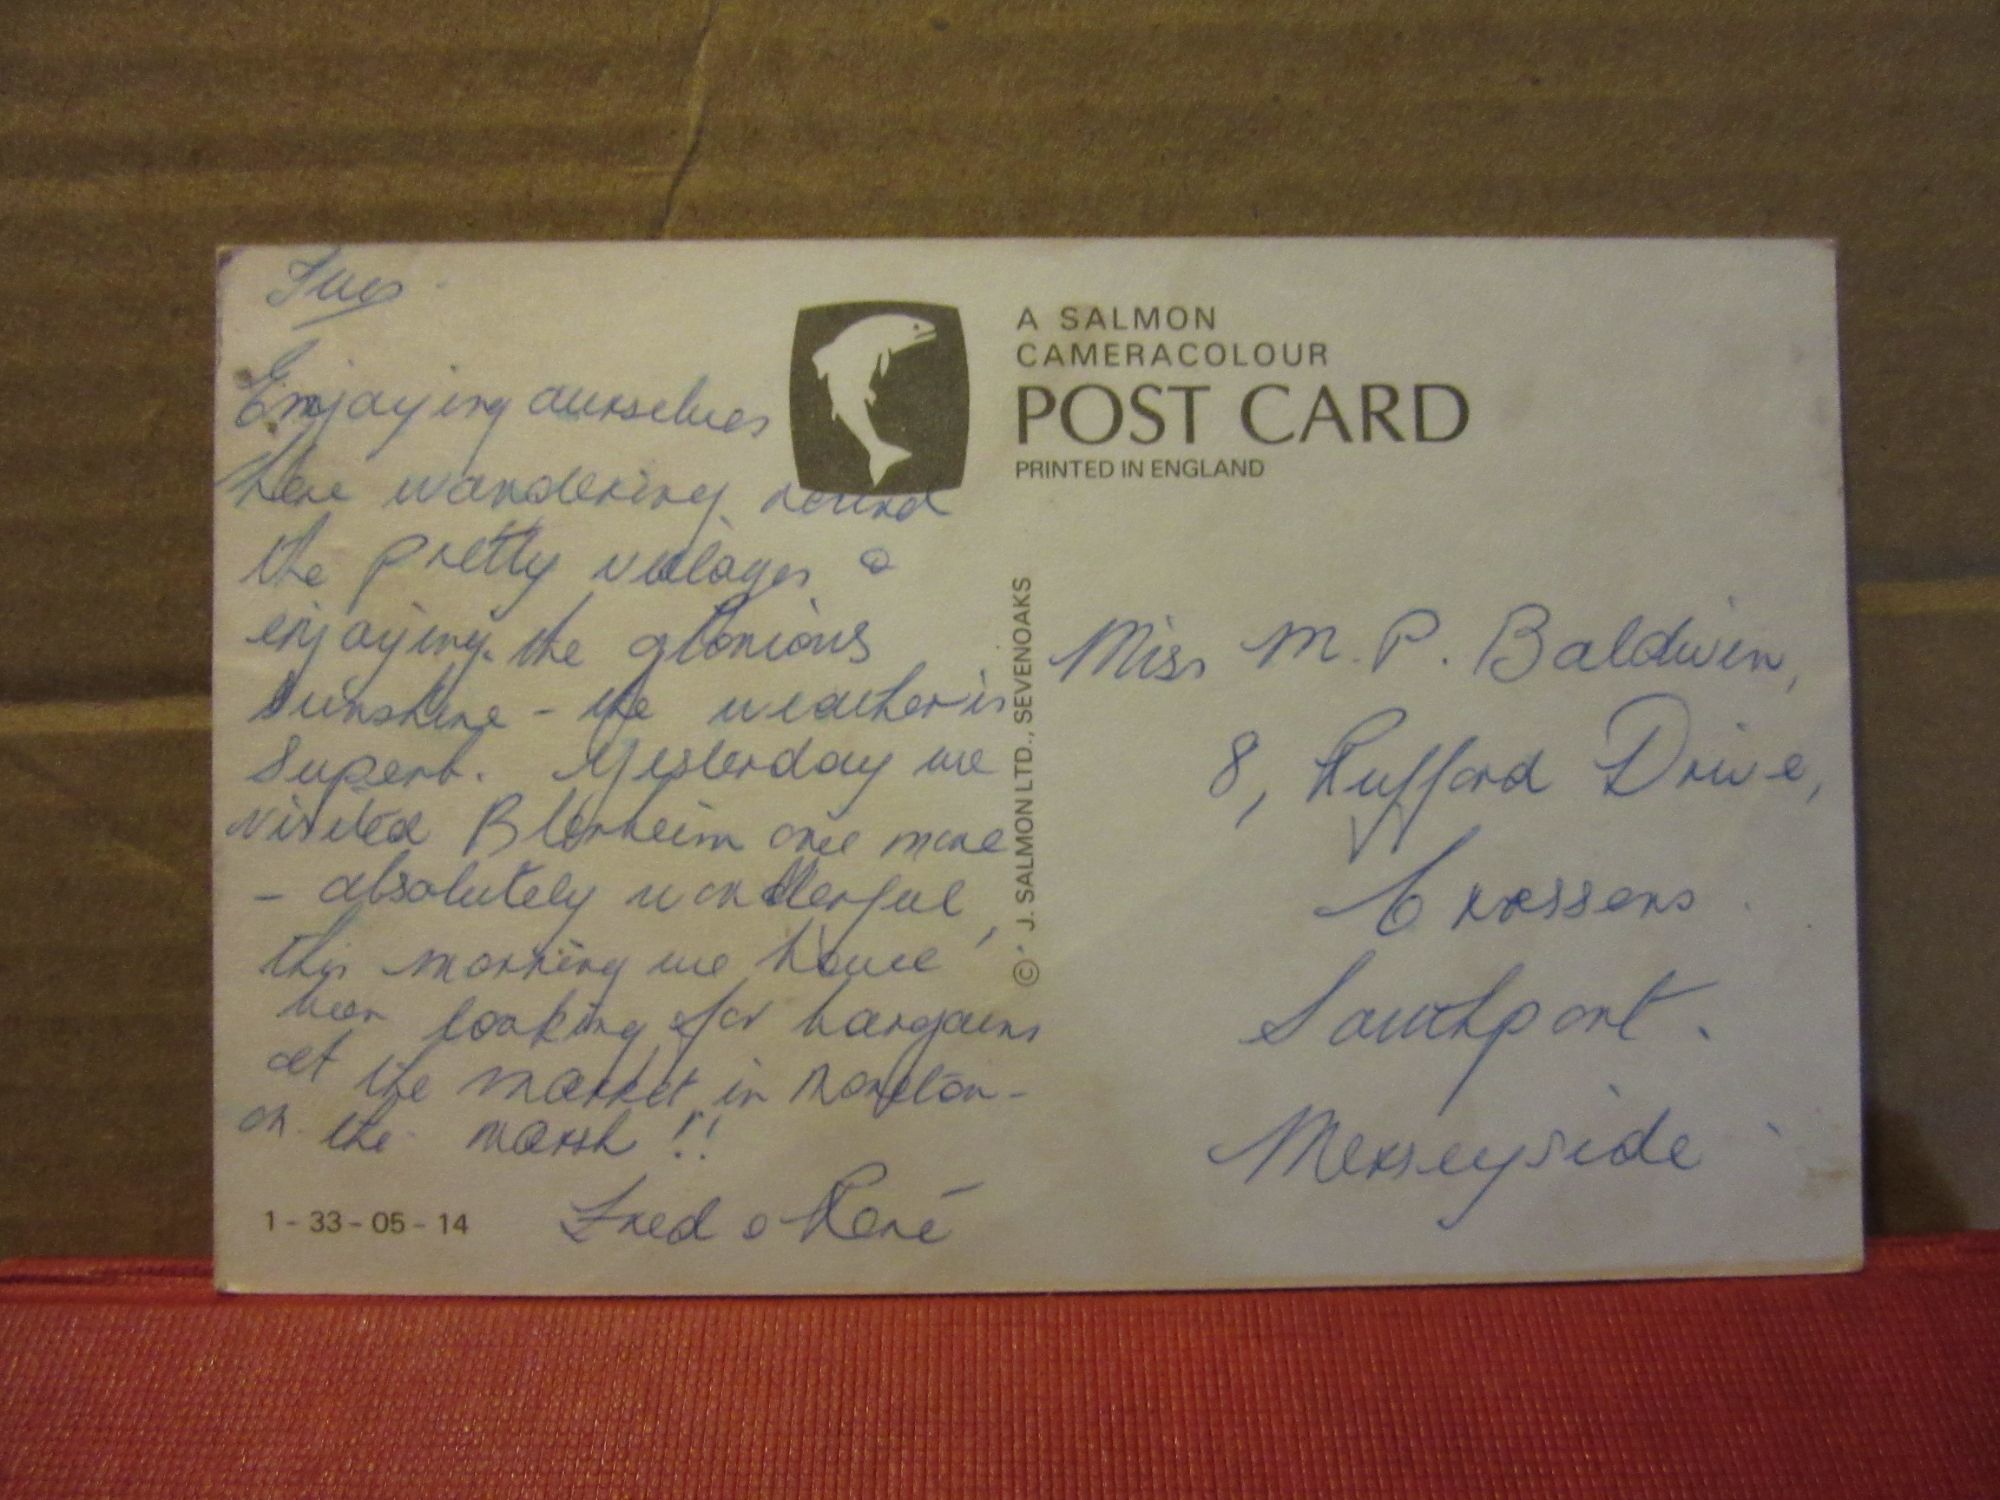 Tues.
Enjoying ourselves
here wandering round
the pretty villages &
enjoying the glorious
sunshine - the weather is
superb. Yesterday we
visited Blenheim once more
- absolutely wonderful,
this morning we have
been looking for bargains
at the market in Moreton-
on-the-Marsh !!
Fred & René
1 - 33 - 05 - 14
A SALMON
CAMERACOLOUR
POST CARD
PRINTED IN ENGLAND
© J. SALMON LTD., SEVENOAKS
Miss M. P. Baldwin,
8, Rufford Drive,
Crossens.
Southport.
Merseyside